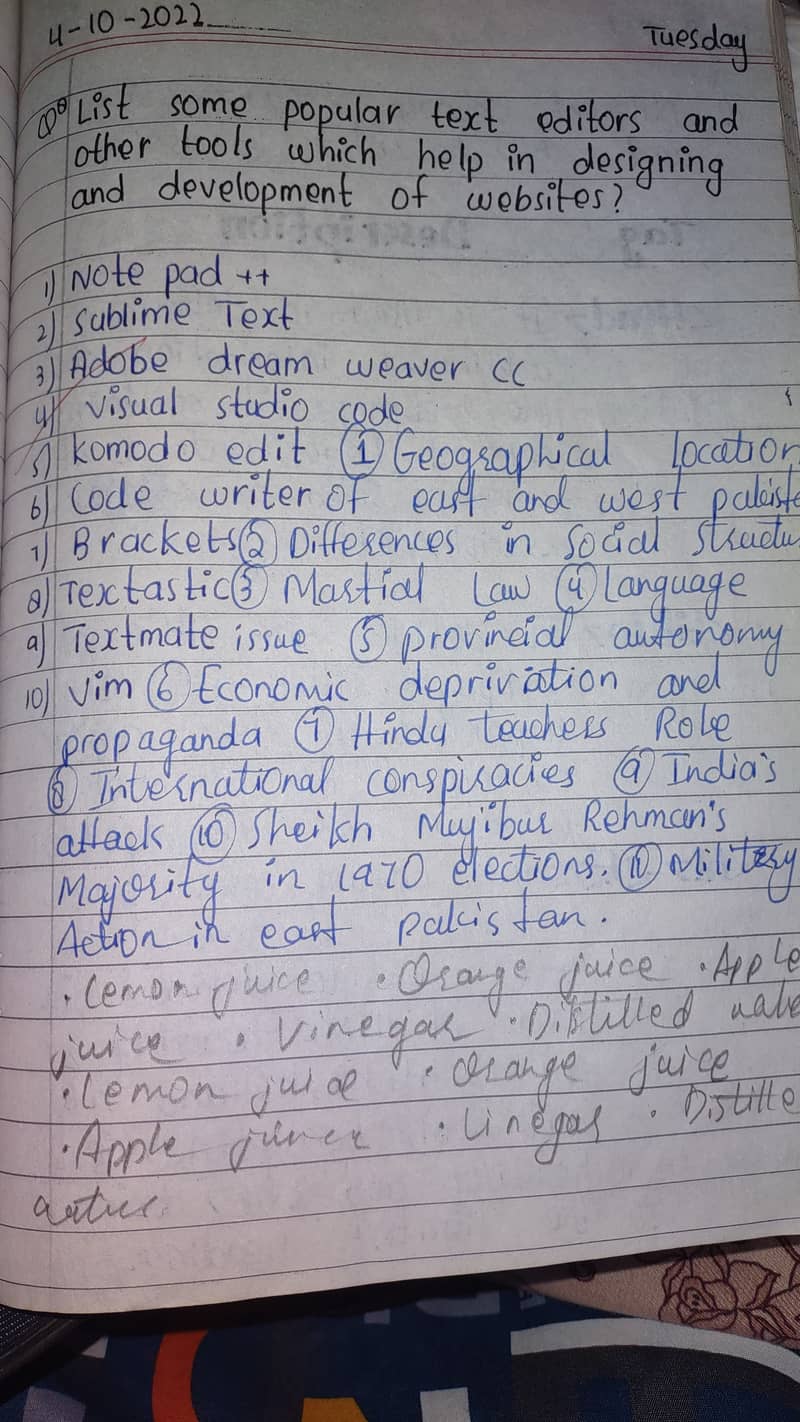 4-10-2022
Tuesday
Q: List some popular text editors and
other tools which help in designing
and development of websites?
1) Note pad ++
2) Sublime Text
3) Adobe dream weaver CC
4) Visual studio code
5) Komodo edit ① Geographical location
6) Code writer of east and west pakist
7) Brackets ② Differences in Social Structu
8) Textastic ③ Martial Law ④ Language
9) Textmate issue ⑤ provincial autonomy
10) Vim ⑥ Economic deprivation and
propaganda ⑦ Hindu teachers Role
⑧ International conspiracies ⑨ India's
attack ⑩ Sheikh Mujibur Rehman's
Majority in 1970 elections. ⑪ Military
Action in east pakistan.
• Lemon juice • Orange juice • Apple
juice • Vinegar • Distilled wate
• Lemon juice • Orange juice
• Apple • Vinegar • Distille